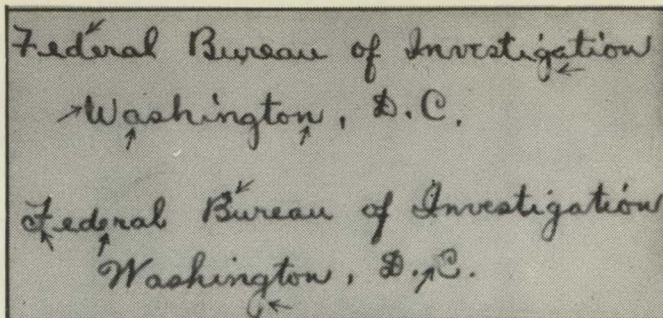 Federal Bureau of Investigation
Washington, D.C.
Federal Bureau of Investigation
Washington, D.C.